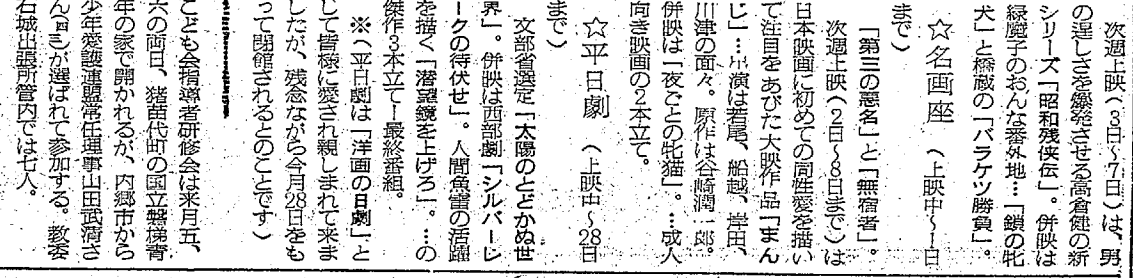 次週上映（3日〜7日）は、男
の逞しさを爆発させる高倉健の新
シリーズ「昭和残侠伝」。併映は
緑魔子のおんな番外地…「鎖の牝
犬」と橋蔵の「バラケツ勝負」。
☆名画座　（上映中〜1日
まで）
「第三の悪名」と「無宿者」。
次週上映（2日〜8日まで）は
日本映画に初めての同性愛を描い
て注目をあびた大映作品「まん
じ」…出演は若尾、船越、岸田、
川津の面々。原作は谷崎潤一郎。
併映は「夜ごとの牝猫」。…成人
向き映画の2本立て。
☆平日劇　（上映中〜28日
まで）
文部省選定「太陽のとどかぬ世
界」。併映は西部劇「シルバーレ
ークの待伏せ」。人間魚雷の活躍
を描く「潜望鏡を上げろ」。…の
傑作3本立て！最終番組。
※（平日劇は「洋画の日劇」と
して皆様に愛され親しまれて来ま
したが、残念ながら今月28日をも
って閉館されるとのことです）
こども会指導者研修会は来月五、
六の両日、猪苗代町の国立磐梯青
年の家で開かれるが、内郷市から
少年愛護連盟常任理事山田武清さ
ん（四三）が選ばれて参加する。教委
石城出張所管内では七人。